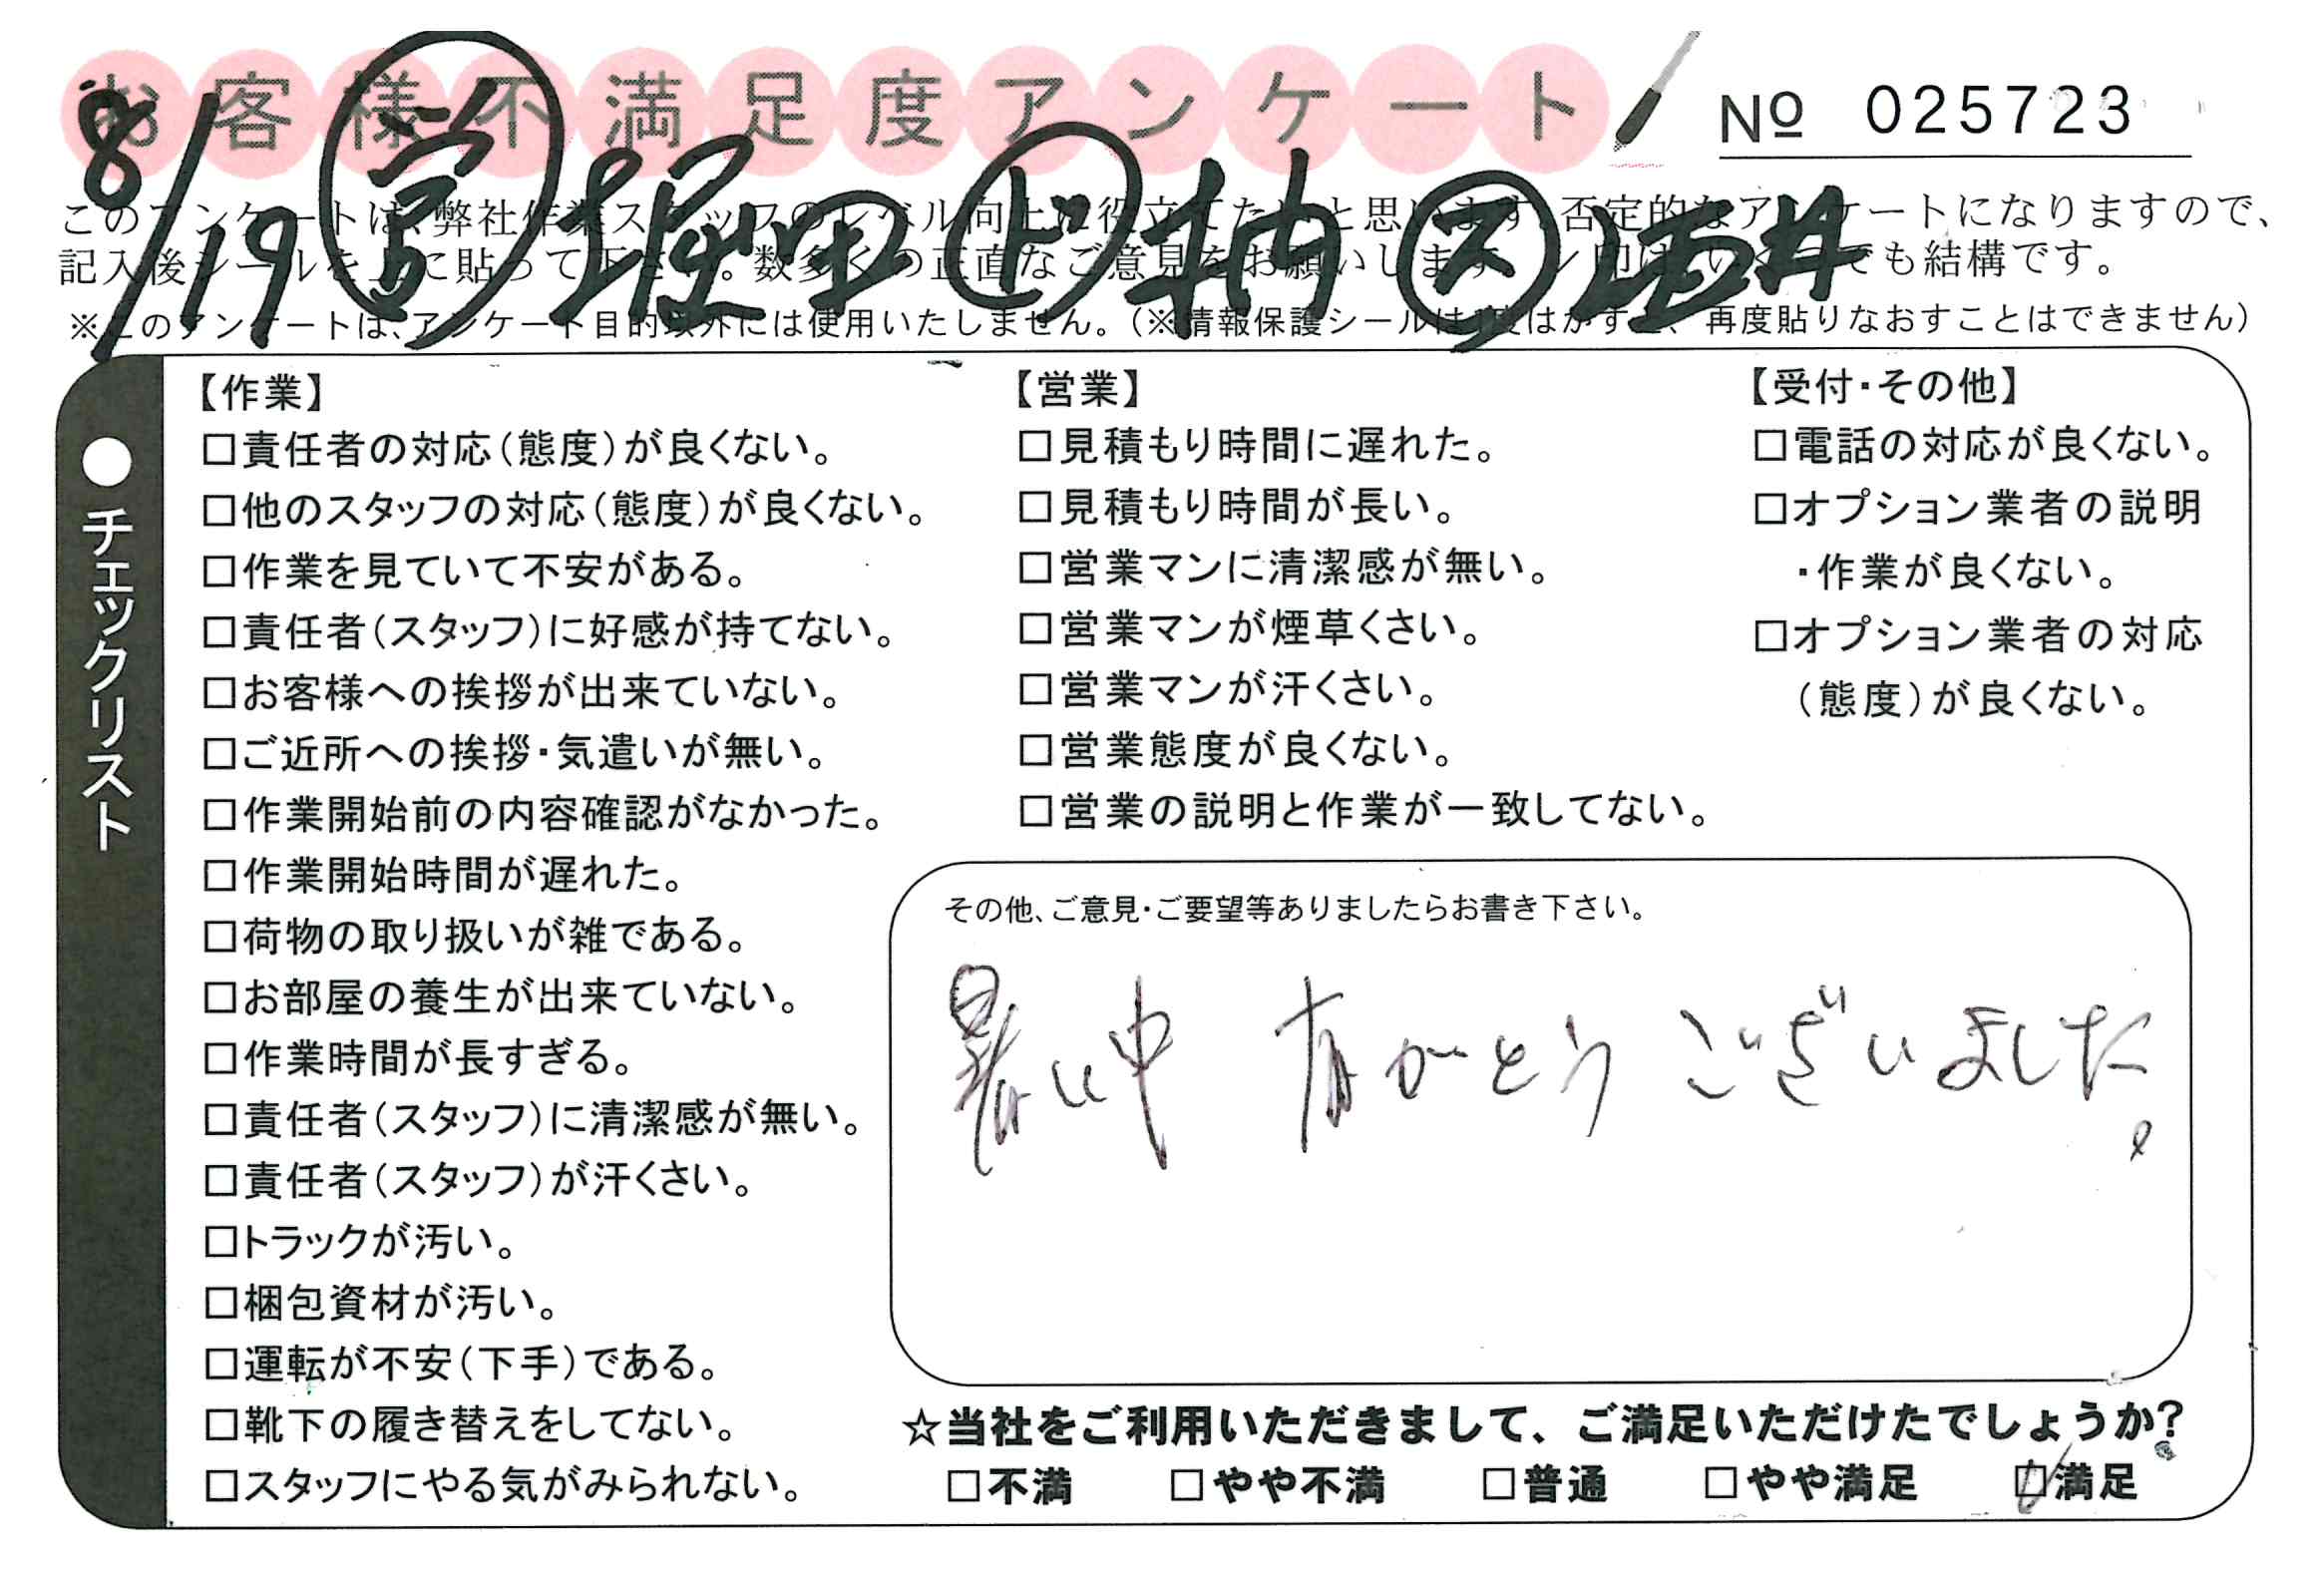 お客様不満足度アンケート
№ 025723
8/19 営 堀田 ド 柄 ス 酒井
このアンケートは、弊社作業スタッフのレベル向上に役立てたいと思います。否定的なアンケートになりますので、
記入後シールを上に貼って下さい。数多くの正直なご意見をお願いします。ペン印はいくつでも結構です。
※このアンケートは、アンケート目的以外には使用いたしません。（※情報保護シールは1度はがすと、再度貼りなおすことはできません）
●チェックリスト
【作業】
□責任者の対応（態度）が良くない。
□他のスタッフの対応（態度）が良くない。
□作業を見ていて不安がある。
□責任者（スタッフ）に好感が持てない。
□お客様への挨拶が出来ていない。
□ご近所への挨拶・気遣いが無い。
□作業開始前の内容確認がなかった。
□作業開始時間が遅れた。
□荷物の取り扱いが雑である。
□お部屋の養生が出来ていない。
□作業時間が長すぎる。
□責任者（スタッフ）に清潔感が無い。
□責任者（スタッフ）が汗くさい。
□トラックが汚い。
□梱包資材が汚い。
□運転が不安（下手）である。
□靴下の履き替えをしてない。
□スタッフにやる気がみられない。
【営業】
□見積もり時間に遅れた。
□見積もり時間が長い。
□営業マンに清潔感が無い。
□営業マンが煙草くさい。
□営業マンが汗くさい。
□営業態度が良くない。
□営業の説明と作業が一致してない。
【受付・その他】
□電話の対応が良くない。
□オプション業者の説明
・作業が良くない。
□オプション業者の対応
（態度）が良くない。
その他、ご意見・ご要望等ありましたらお書き下さい。
暑い中 有がとうございました。
☆当社をご利用いただきまして、ご満足いただけたでしょうか？
□不満 □やや不満 □普通 □やや満足 ☑満足